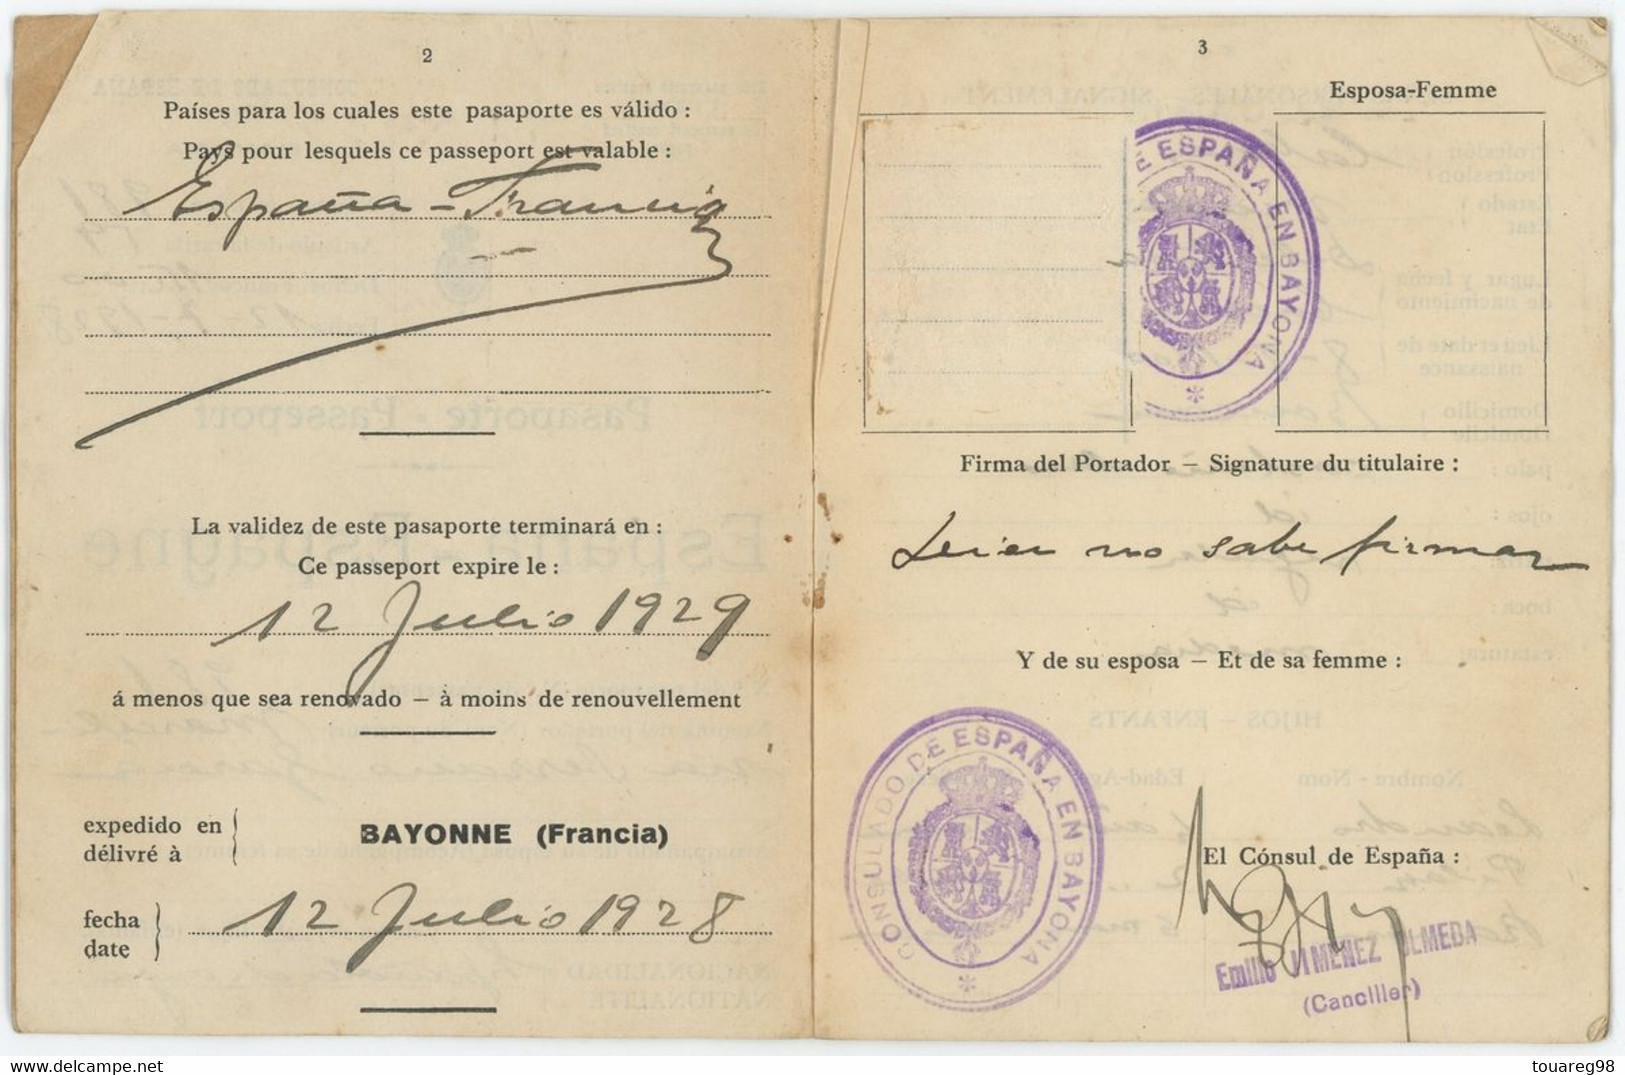 2
Países para los cuales este pasaporte es válido :
Pays pour lesquels ce passeport est valable :
España - Francia
La validez de este pasaporte terminará en :
Ce passeport expire le :
12 Julio 1929
á menos que sea renovado — à moins de renouvellement
expedido en
délivré à
BAYONNE (Francia)
fecha
date
12 Julio 1928
3
Esposa-Femme
DE ESPAÑA EN BAYONA
Firma del Portador — Signature du titulaire :
no sabe firmar
Y de su esposa — Et de sa femme :
CONSULADO DE ESPAÑA EN BAYONA
El Cónsul de España :
Emilio JIMENEZ OLMEDA
(Canciller)
touareg98